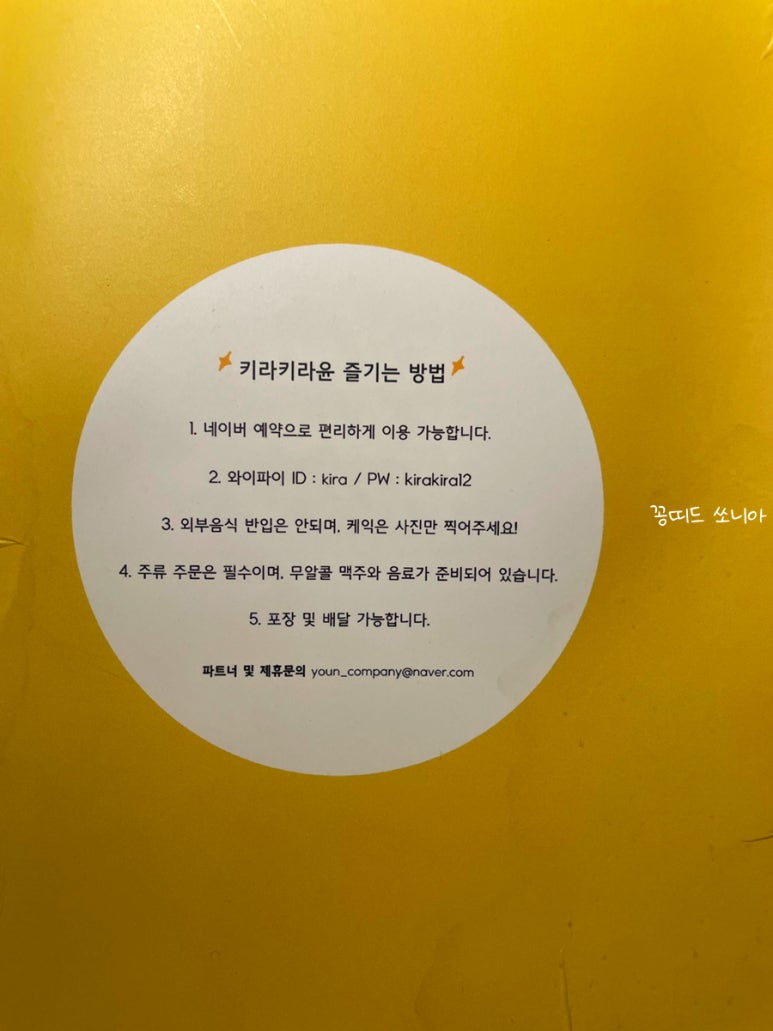 키라키라윤 즐기는 방법
1. 네이버 예약으로 편리하게 이용 가능합니다.
2. 와이파이 ID : kira / PW : kirakira12
3. 외부음식 반입은 안되며, 케익은 사진만 찍어주세요!
4. 주류 주문은 필수이며, 무알콜 맥주와 음료가 준비되어 있습니다.
5. 포장 및 배달 가능합니다.
파트너 및 제휴문의 youn_company@naver.com
꽁띠드 쏘니아